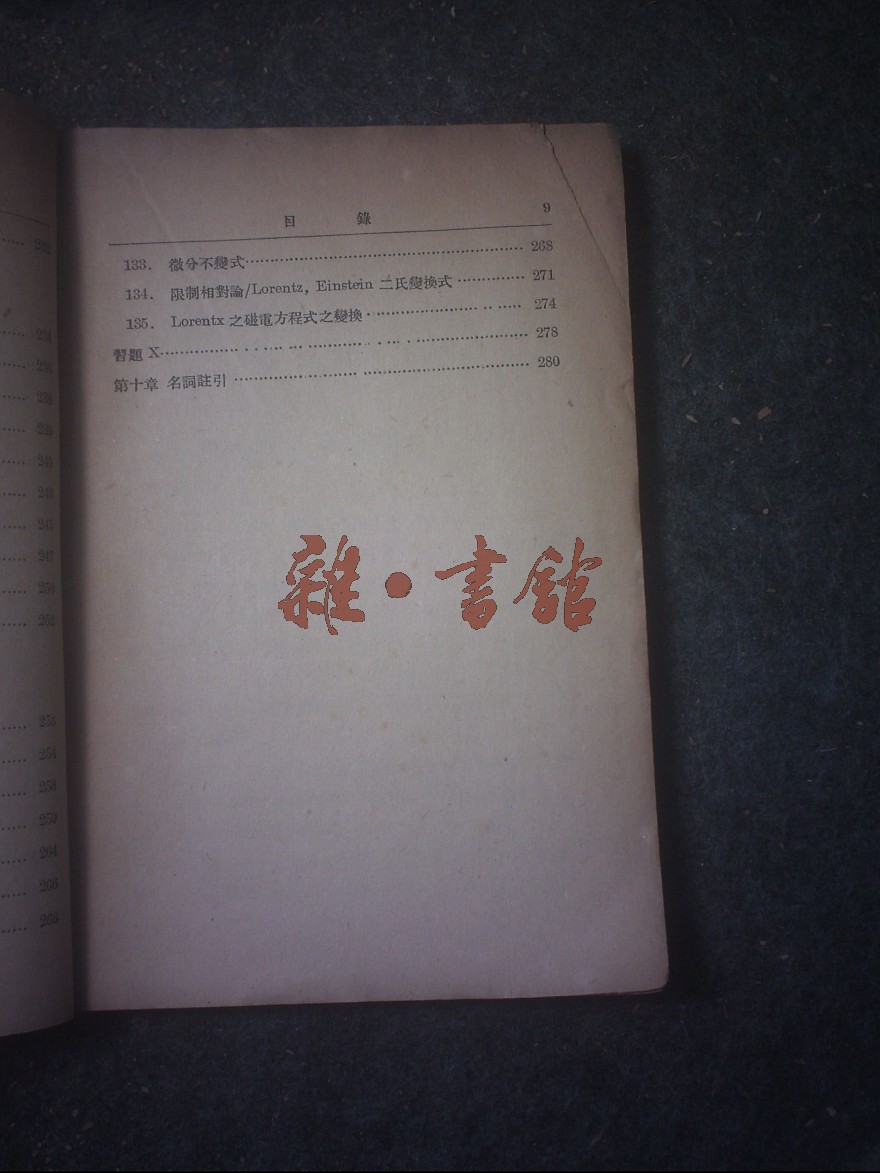 目錄 9
133. 微分不變式 268
134. 限制相對論/Lorentz, Einstein 二氏變換式 271
135. Lorentx 之磁電方程式之變換 274
習題 X 278
第十章 名詞註引 280
雜·書館
245
247
250
252
253
254
258
259
264
266